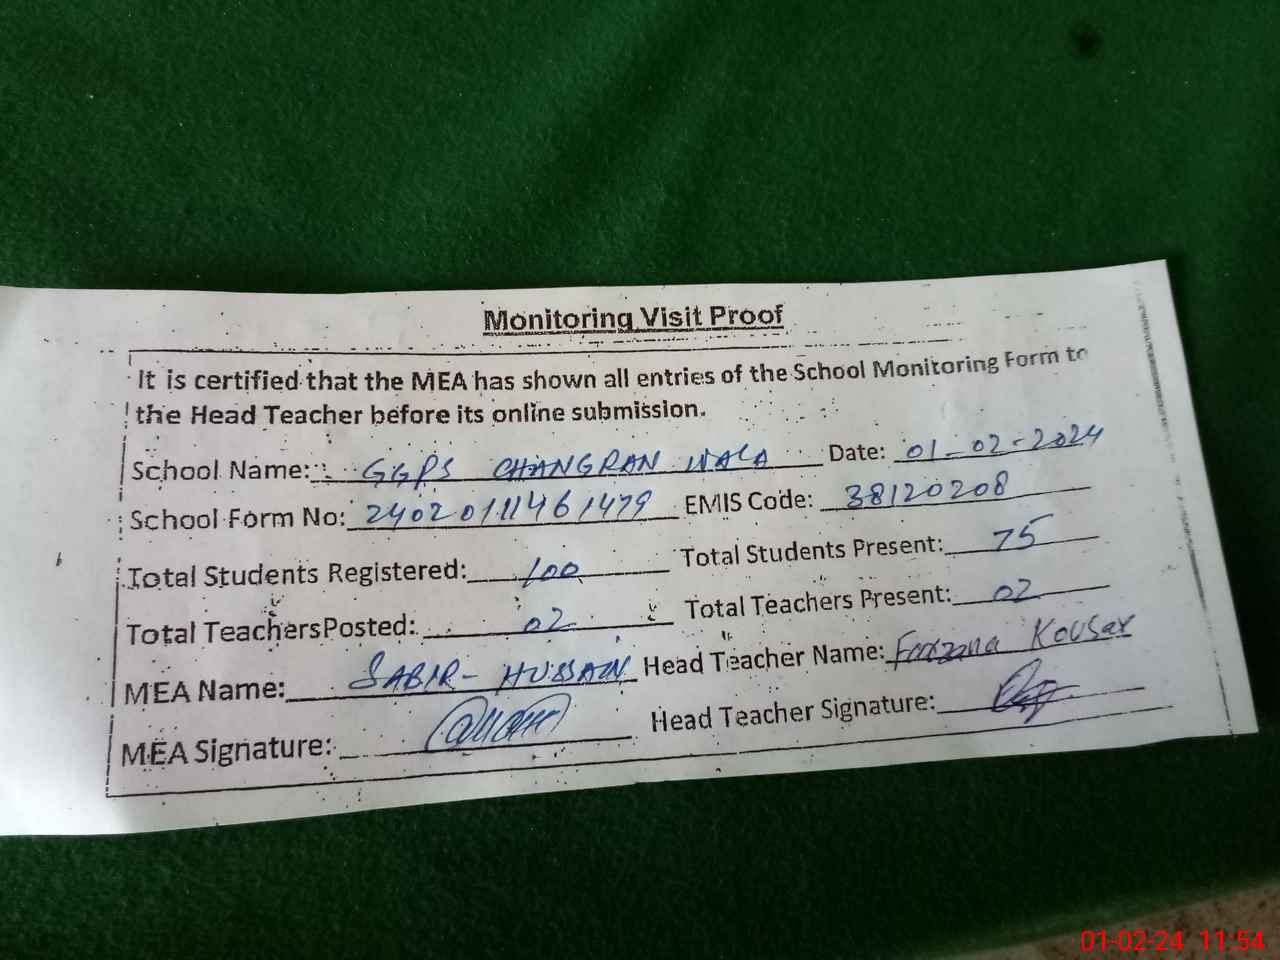 Monitoring Visit Proof
It is certified that the MEA has shown all entries of the School Monitoring Form to
the Head Teacher before its online submission.
School Name: GGPS CHANGRAN WALA Date: 01-02-2024
School Form No: 24020111461479 EMIS Code: 38120208
Total Students Registered: 100 Total Students Present: 75
Total Teachers Posted: 02 Total Teachers Present: 02
MEA Name: SABIR-HUSSAIN Head Teacher Name: Farzana Kousar
MEA Signature: Head Teacher Signature:
01-02-24 11:54